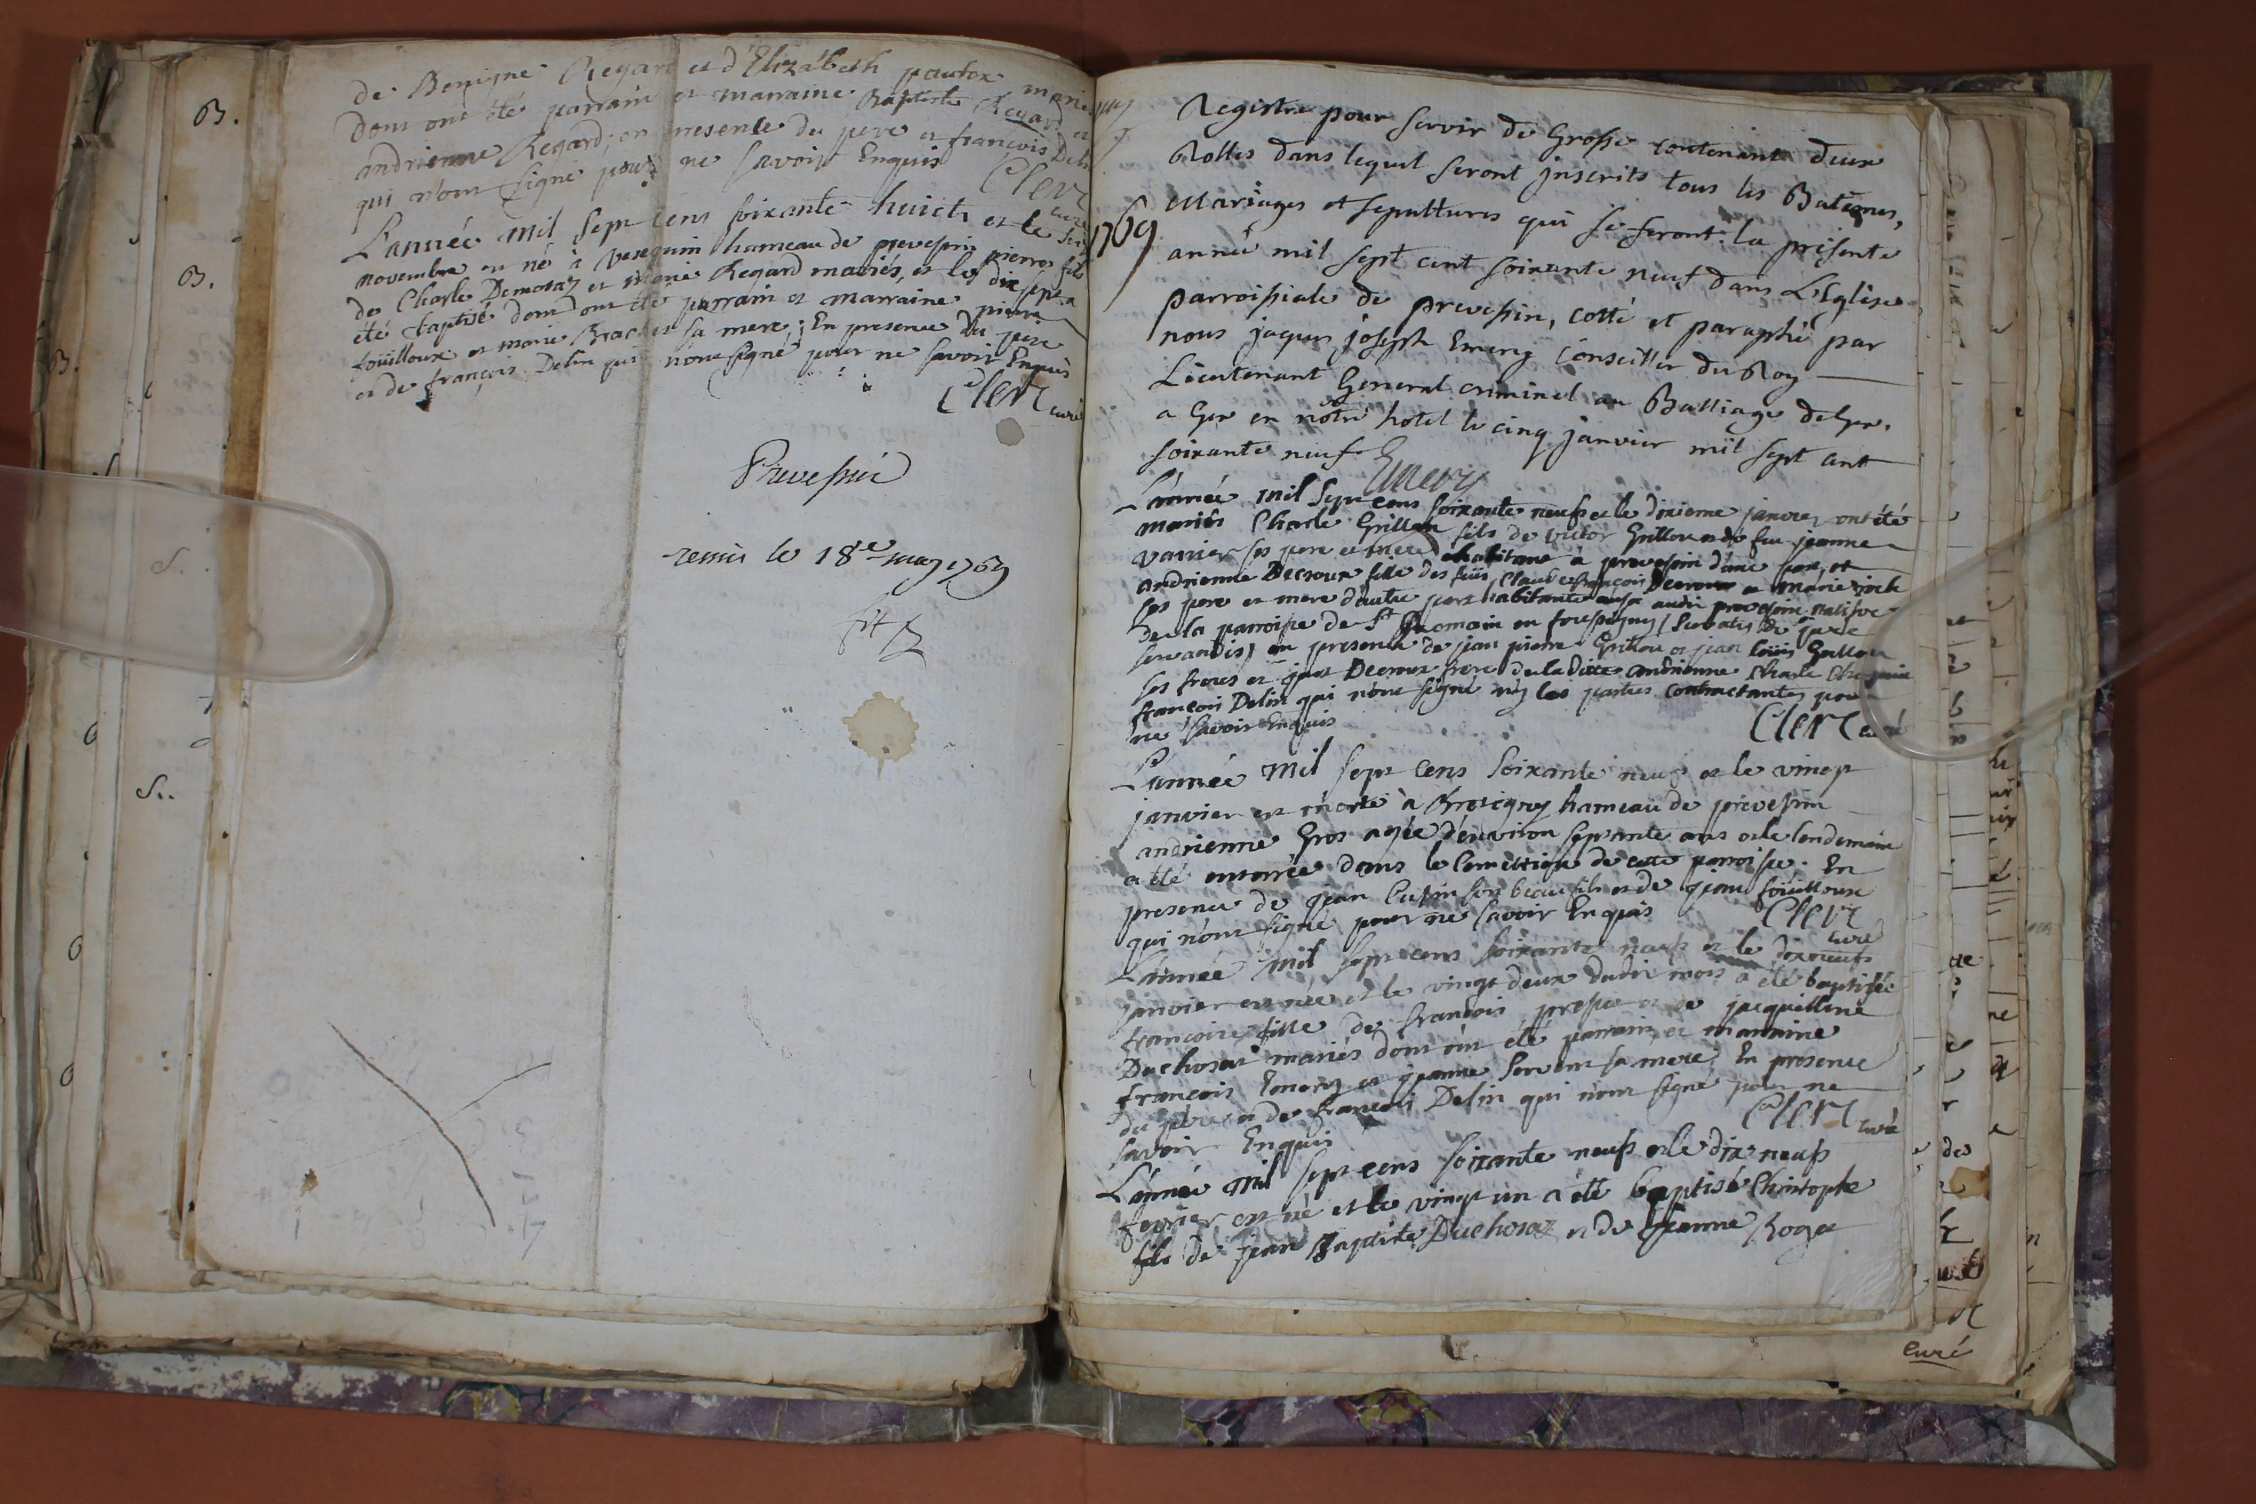 de Benigne Regard et d'Elizabeth pautex mariés
dont ont été parrain et marraine Baptiste Regard et
andrienne Regard, en presence du pere et françois Delin
qui n'ont signé pour ne savoir Enquis
Clerc curé
L'année mil sept cens soixante huict et le
novembre est né à vesegnin hameau de prevessin pierre fils
de Charle Demoraz et marie Regard mariés, et le dix sept a
été baptisé dont ont été parrain et marraine pierre
foüilloux et marie sa mere; En presence du pere
et de françois Delin qui n'ont signé pour ne savoir Enquis
Clerc curé
Prevessin
remis le 18e may 1769
B.
B.
B.
S.
S..
1769
Registre pour servir de Grosse contenant deux
Rolles dans lequel seront jnscrits tous les Batêmes,
Mariages et sepultures qui se feront la présente
année mil sept cent soixante neuf dans L'Eglise
parroissiale de prevessin, cotté et paraphé par
nous jaques joseph Emery Conseiller du Roy
Lieutenant General criminel au Balliage de Gex.
a Gex en nôtre hotel le cinq janvier mil sept cent
soixante neuf Emery
L'année mil sept cens soixante neufs et le dixieme janvier ont été
mariés Charle Grillon fils de victor Grillon et de fue jeanne
vannier ses pere et mere habitant à prevessin d'une part, et
andrienne Decroux fille des fûs Claude françois Decroux et marie
ses pere et mere d'autre part habitante aussi audit prevessin native
de la parroisse de St Romain en
en presence de jean pierre Grillon et jean loüis Grillon
ses freres et Decroux frere de la ditte andrienne Charle
françois Delin qui n'ont signé ny les parties contractantes pour
ne savoir Enquis
Clerc curé
L'année mil sept cens soixante neufs et le vingt
janvier est morte à Bretigny hameau de prevessin
andrienne Gros agée d'environ septante ans et le lendemain
a été enterrée dans le Cemettiere de cette parroisse. En
presence de jean son beau fils et de jean foüilloux
qui n'ont signé pour ne savoir Enquis
Clerc curé
L'année mil sept cens soixante neufs et le dixneufs
janvier est née et le vingt deux dudit mois a été baptisée
françoise fille de françois et de jacqueline
Duchosat mariés dont ont été parrain et marraine
françois Emery et jeanne sa mere, En presence
du pere et de françois Delin qui n'ont signé pour ne
savoir Enquis
Clerc curé
L'année mil sept cens soixante neufs et le dix neufs
fevrier est né et le vingt un a été baptisé Christophe
fils de jean Baptiste Duchosaz et de jeanne Roga
curé